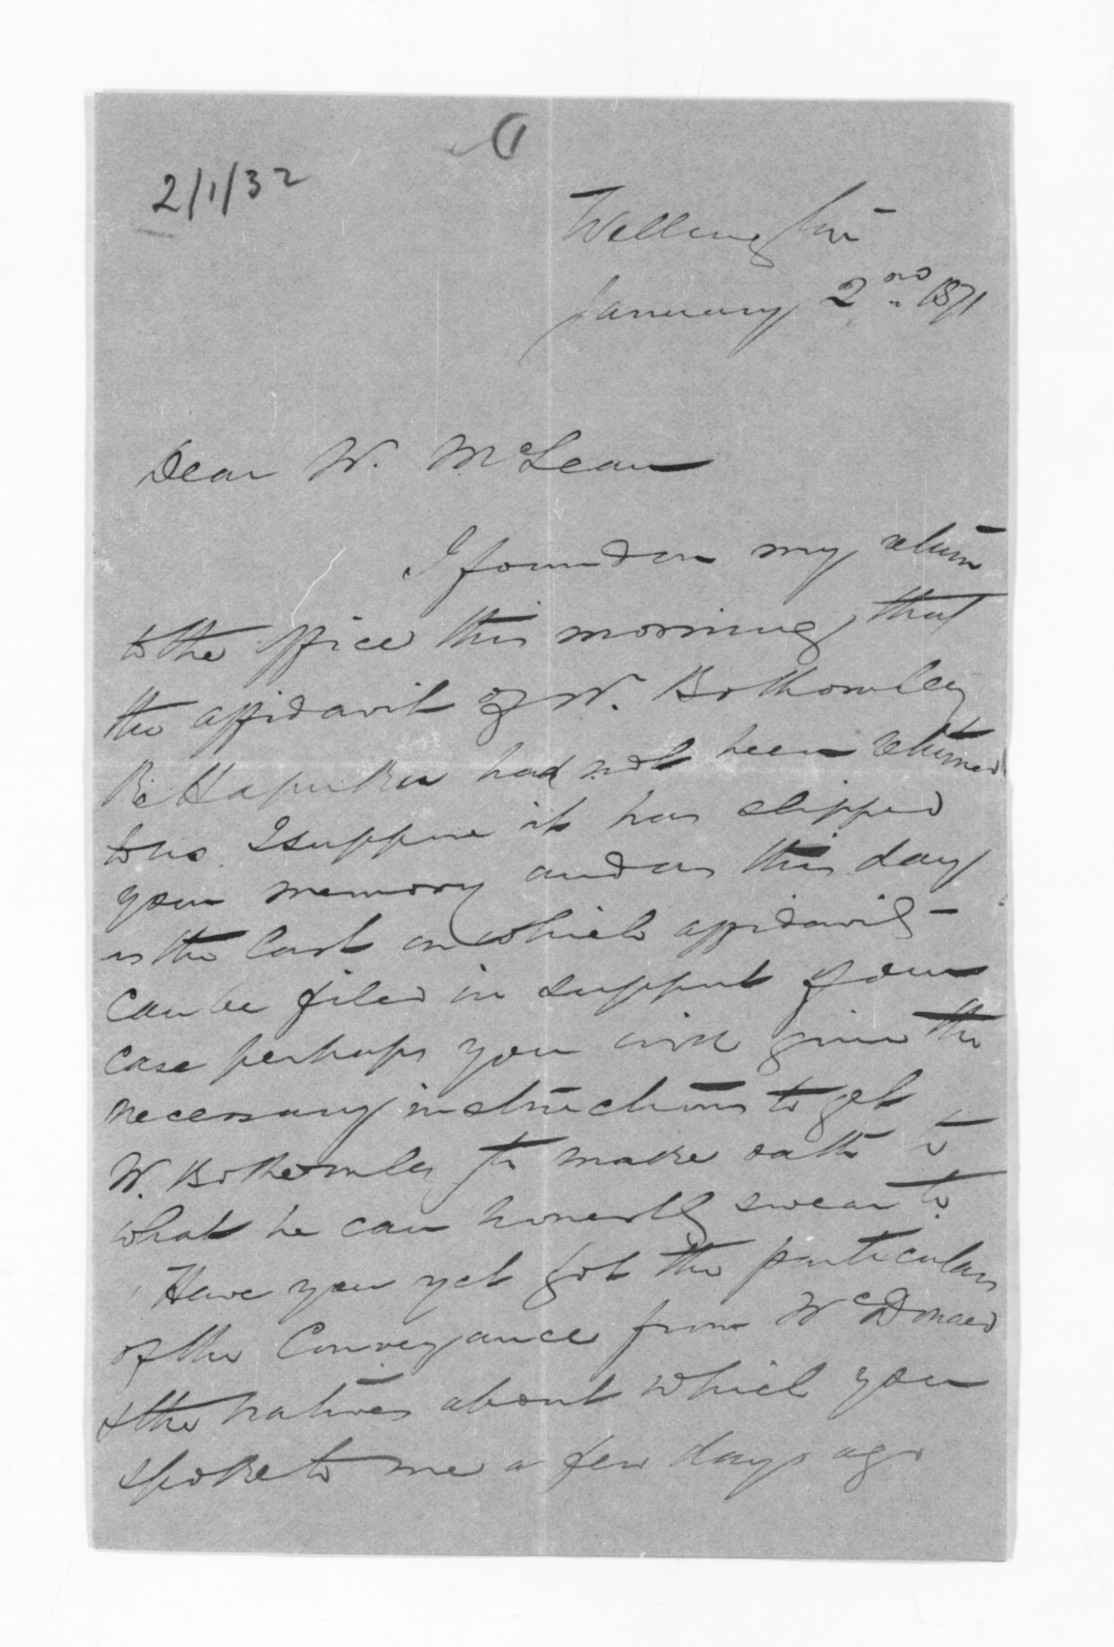 2/1/32
Wellington
January 2nd 1871
Dear Mr. McLean
I found on my return
to the office this morning that
the affidavit of Mr. Bothomley
Re Hapuku had not been returned
to us. I suppose it has slipped
your memory and as this day
is the last on which affidavits
can be filed in support of our
case perhaps you will give the
necessary instructions to get
Mr. Bothomley to make oath to
what he can honestly swear to.
Have you yet got the particulars
of the Conveyance from McDonald
& the natives about which you
spoke to me a few days ago